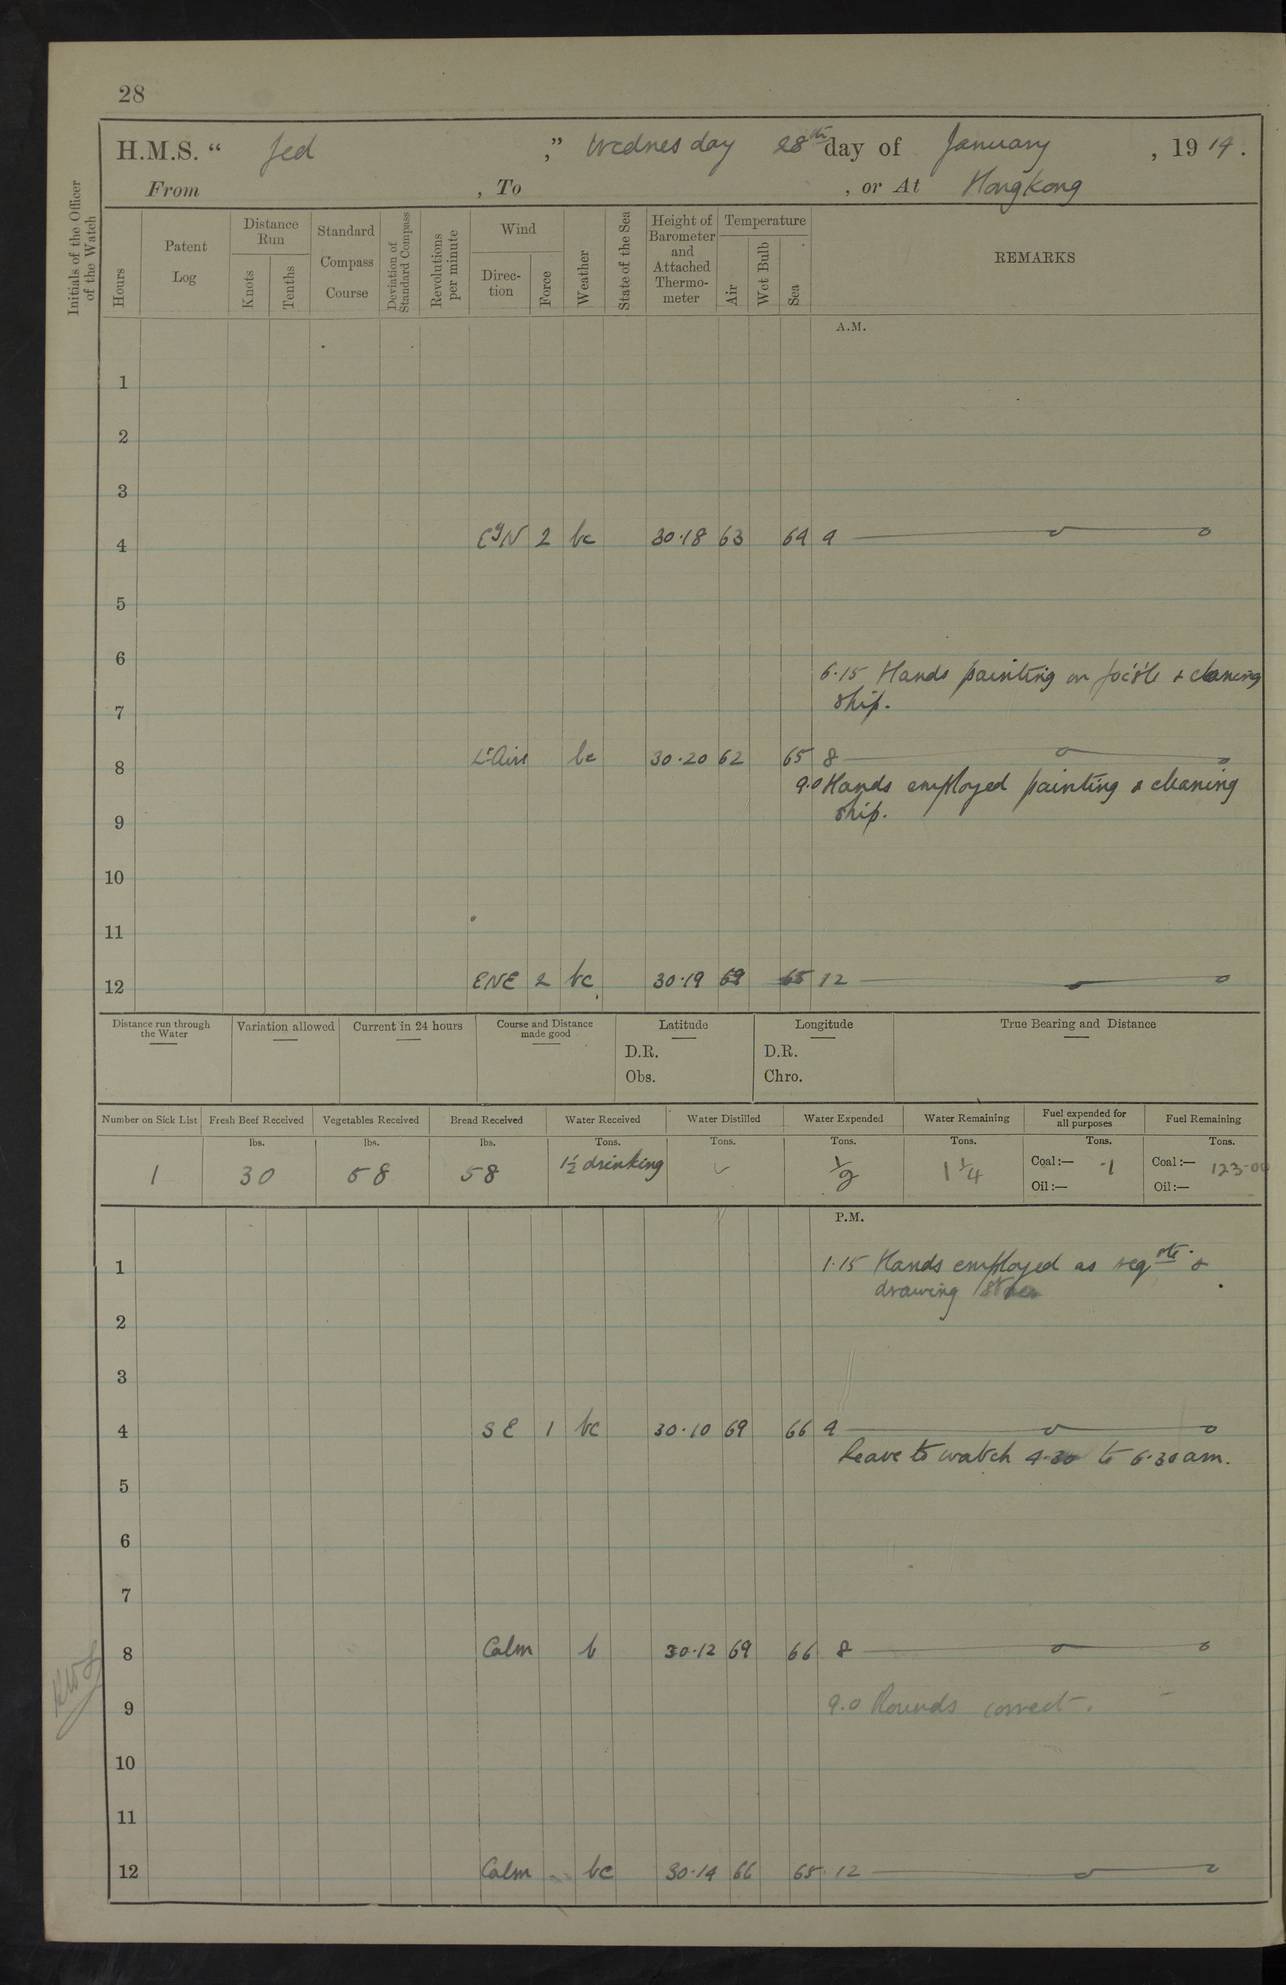 28
H.M.S. “ Jed ,” Wednesday 28th day of January , 1914.
From , To , or At Hongkong
Initials of the Officer of the Watch
Hours
Patent Log
Distance Run
Knots
Tenths
Standard Compass Course
Deviation of Standard Compass
Revolutions per minute
Wind
Direction
Force
Weather
State of the Sea
Height of Barometer and Attached Thermometer
Temperature
Air
Wet Bulb
Sea
REMARKS
A.M.
1
2
3
4 EyN 2 bc 30·18 63 64 4
5
6
6·15 Hands painting on foc's'le & cleaning
7 ship.
8 Lt Airs bc 30·20 62 65 8
9.0 Hands employed painting & cleaning
9 ship.
10
11
12 ENE 2 bc 30·19 69 65 12
Distance run through the Water
Variation allowed
Current in 24 hours
Course and Distance made good
Latitude
D.R.
Obs.
Longitude
D.R.
Chro.
True Bearing and Distance
Number on Sick List Fresh Beef Received Vegetables Received Bread Received Water Received Water Distilled Water Expended Water Remaining Fuel expended for all purposes Fuel Remaining
lbs. lbs. lbs. Tons. Tons. Tons. Tons. Tons. Tons.
1 30 58 58 1½ drinking ½ 1¼ Coal:— ·1 Coal:— 123·00
Oil:— Oil:—
P.M.
1 1·15 Hands employed as reqte. &
drawing stores
2
3
4 SE 1 bc 30·10 69 66 4
Leave to watch 4·30 to 6·30 am.
5
6
7
8 Calm b 30·12 69 66 8
9 9.0 Rounds correct.
10
11
12 Calm bc 30·14 66 65 12